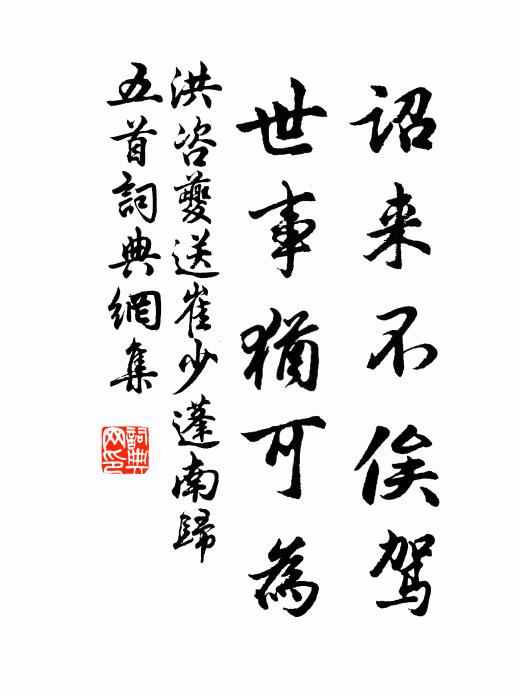 詔来不俟駕
世事猶可為
洪咨夔送崔少蓬南歸
五首詞典網集
詞典
网印